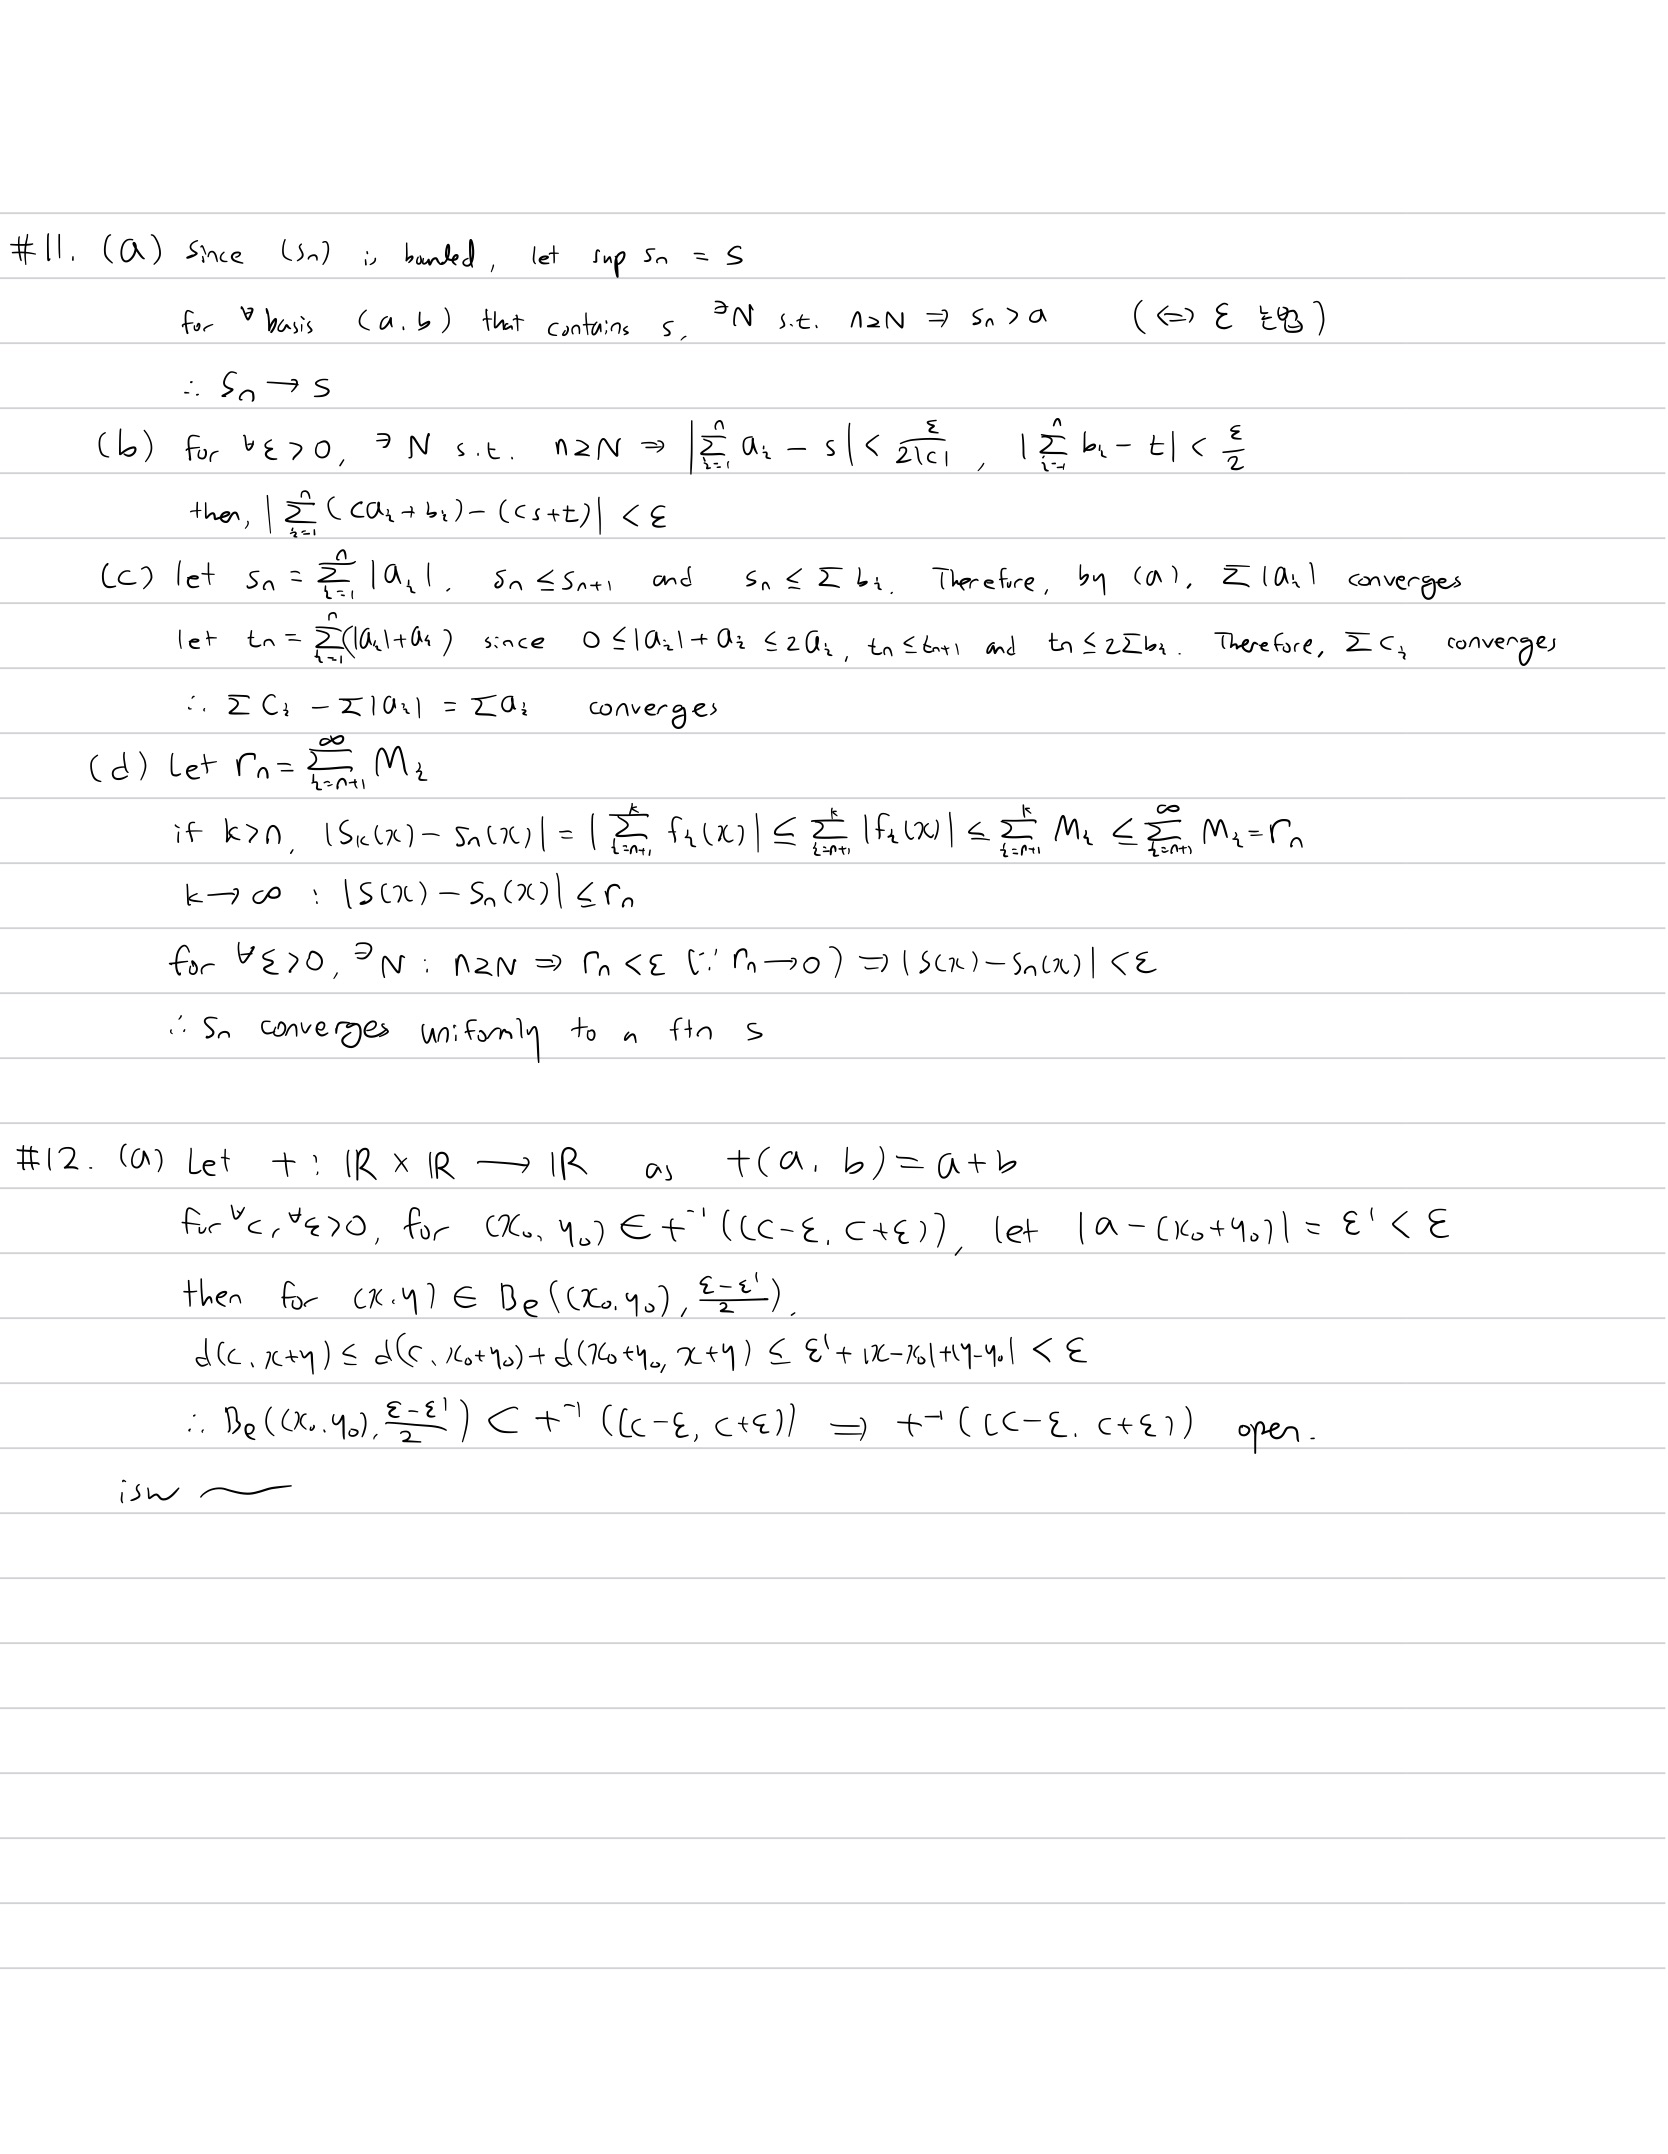 #11. (a) since (sₙ) is bounded, let sup sₙ = s
for ∀ basis (a, b) that contains s, ∃N s.t. n≥N ⇒ sₙ > a (⇔ ε 논법)
∴ sₙ → s
(b) for ∀ε>0, ∃N s.t. n≥N ⇒ |∑_{i=1}^{n} aᵢ − s| < ε/2|c| , |∑_{i=1}^{n} bᵢ − t| < ε/2
then, |∑_{i=1}^{n} (caᵢ + bᵢ) − (cs+t)| < ε
(c) let sₙ = ∑_{i=1}^{n} |aᵢ|, sₙ ≤ sₙ₊₁ and sₙ ≤ ∑ bᵢ. Therefore, by (a), ∑|aᵢ| converges
let tₙ = ∑_{i=1}^{n} (|aᵢ|+aᵢ) since 0 ≤ |aᵢ| + aᵢ ≤ 2aᵢ, tₙ ≤ tₙ₊₁ and tₙ ≤ 2∑bᵢ. Therefore, ∑cᵢ converges
∴ ∑cᵢ − ∑|aᵢ| = ∑aᵢ converges
(d) Let rₙ = ∑_{i=n+1}^{∞} Mᵢ
if k>n, |Sₖ(x) − sₙ(x)| = |∑_{i=n+1}^{k} fᵢ(x)| ≤ ∑_{i=n+1}^{k} |fᵢ(x)| ≤ ∑_{i=n+1}^{k} Mᵢ ≤ ∑_{i=n+1}^{∞} Mᵢ = rₙ
k→∞ : |S(x) − Sₙ(x)| ≤ rₙ
for ∀ε>0, ∃N : n≥N ⇒ rₙ < ε (∵ rₙ→0) ⇒ |S(x) − Sₙ(x)| < ε
∴ Sₙ converges uniformly to a ftn s
#12. (a) Let + : ℝ × ℝ ⟶ ℝ as +(a, b) = a+b
for ∀c, ∀ε>0, for (x₀, y₀) ∈ +⁻¹((c−ε, c+ε)), let |a − (x₀+y₀)| = ε' < ε
then for (x, y) ∈ Be((x₀, y₀), (ε−ε')/2),
d(c, x+y) ≤ d(c, x₀+y₀) + d(x₀+y₀, x+y) ≤ ε' + |x−x₀|+|y−y₀| < ε
∴ Be((x₀, y₀), (ε−ε')/2) ⊂ +⁻¹((c−ε, c+ε)) ⟹ +⁻¹((c−ε, c+ε)) open.
isw